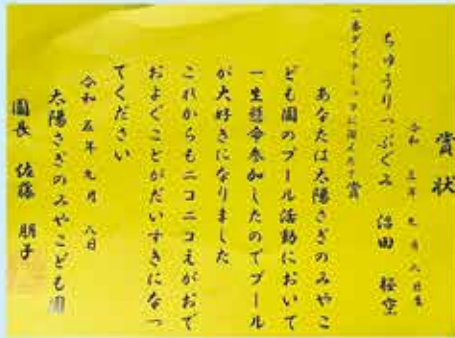 賞状
令和 三年 九月 八日生
ちゅうりっぷぐみ 沼田 軽空
一番ダイナミックに泳げたで賞
あなたは太陽さぎのみやこ
ども園のプール活動において
一生懸命参加したのでプール
が大好きになりました
これからもニコニコえがおで
およぐことがだいすきになっ
てください
令和 五年 九月 八日
太陽さぎのみやこども園
園長 佐藤 朋子